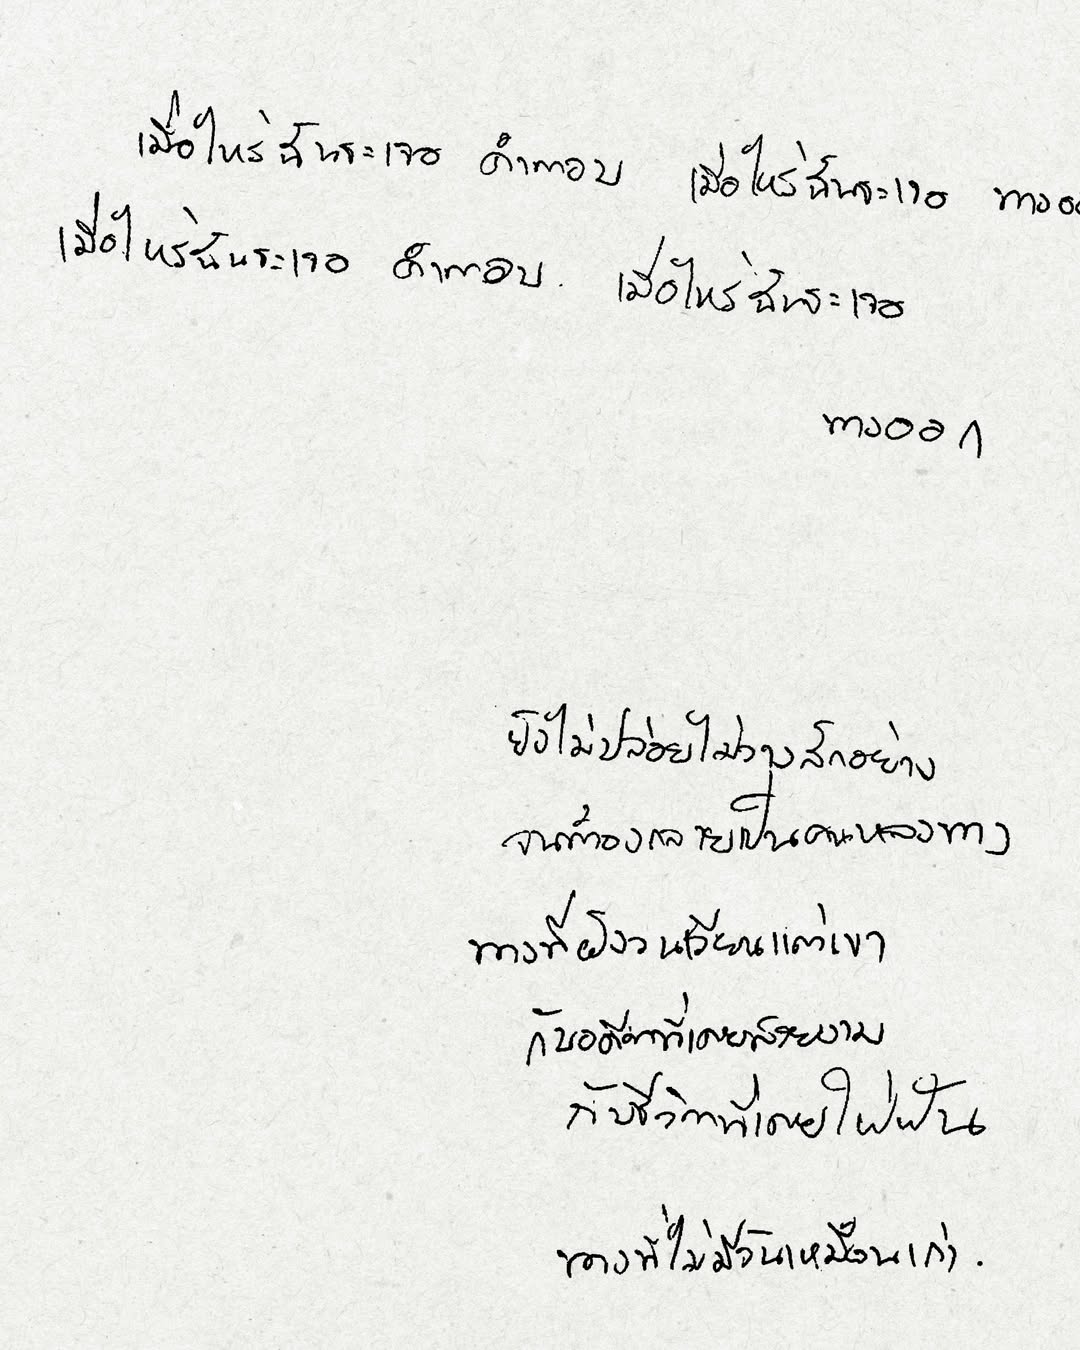 เมื่อไหร่ฉันจะเจอ คำตอบ เมื่อไหร่ฉันจะเจอ ทางออ
เมื่อไหร่ฉันจะเจอ คำตอบ. เมื่อไหร่ฉันจะเจอ
ทางออก
ยังไม่ปล่อยไม่วางสักอย่าง
จนต้องกลายเป็นคนหลงทาง
ทางที่ยังวนเวียนแต่เขา
กับอดีตที่เคยสวยงาม
กับชีวิตที่เคยใฝ่ฝัน
ทางที่ไม่มีวันเหมือนเก่า.